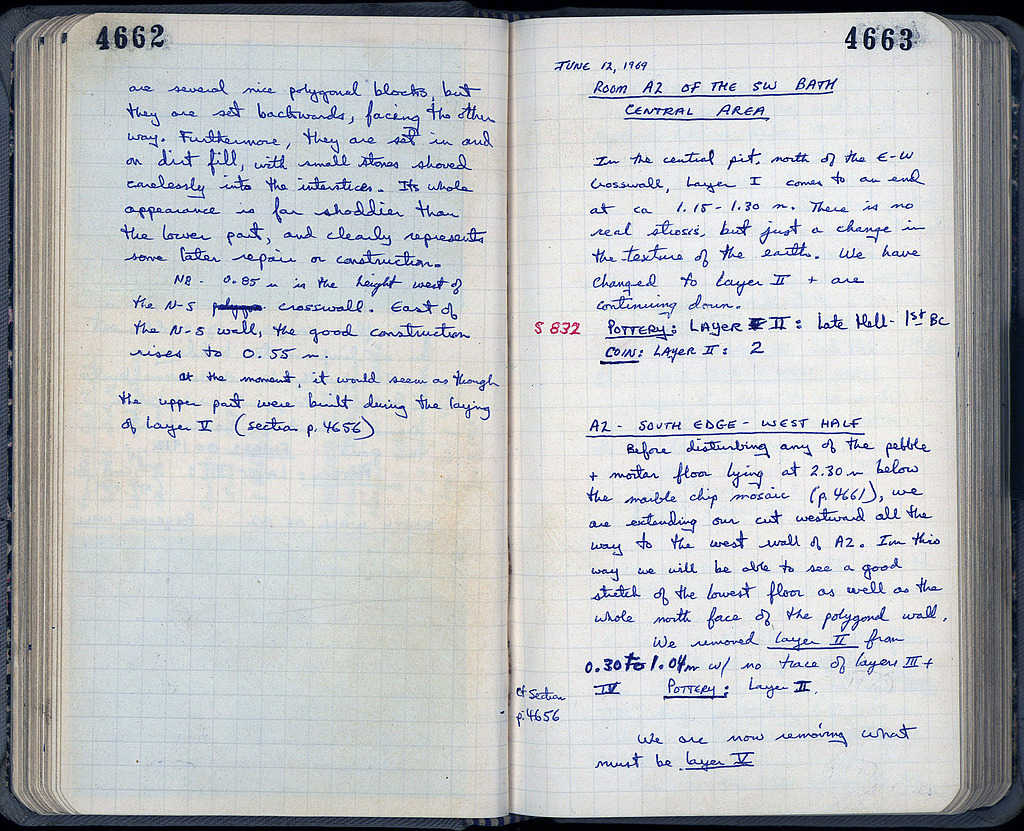 4662
are several nice polygonal blocks, but
they are set backwards, facing the other
way. Furthermore, they are set in and
on dirt fill, with small stones shoved
carelessly into the interstices. Its whole
appearance is far shoddier than
the lower part, and clearly represents
some later repair or construction.
NB - 0.85 m is the height west of
the N-S crosswall. East of
the N-S wall, the good construction
rises to 0.55 m.
At the moment, it would seem as though
the upper part were built during the laying
of Layer V (section p. 4656)
4663
JUNE 12, 1969
ROOM A2 OF THE SW BATH
CENTRAL AREA
In the central pit, north of the E-W
crosswall, Layer I comes to an end
at ca 1.15 - 1.30 m. There is no
real strosis, but just a change in
the texture of the earth. We have
changed to Layer II + are
continuing down.
S 832 POTTERY: LAYER II: Late Hell - 1st BC
COIN: LAYER II: 2
A2 - SOUTH EDGE - WEST HALF
Before disturbing any of the pebble
+ mortar floor lying at 2.30 m below
the marble chip mosaic (p. 4661), we
are extending our cut westward all the
way to the west wall of A2. In this
way we will be able to see a good
stretch of the lowest floor as well as the
whole north face of the polygonal wall.
We removed Layer II from
0.30 to 1.04m w/ no trace of layers III +
IV POTTERY: Layer II.
Cf Section
p. 4656
We are now removing what
must be layer V